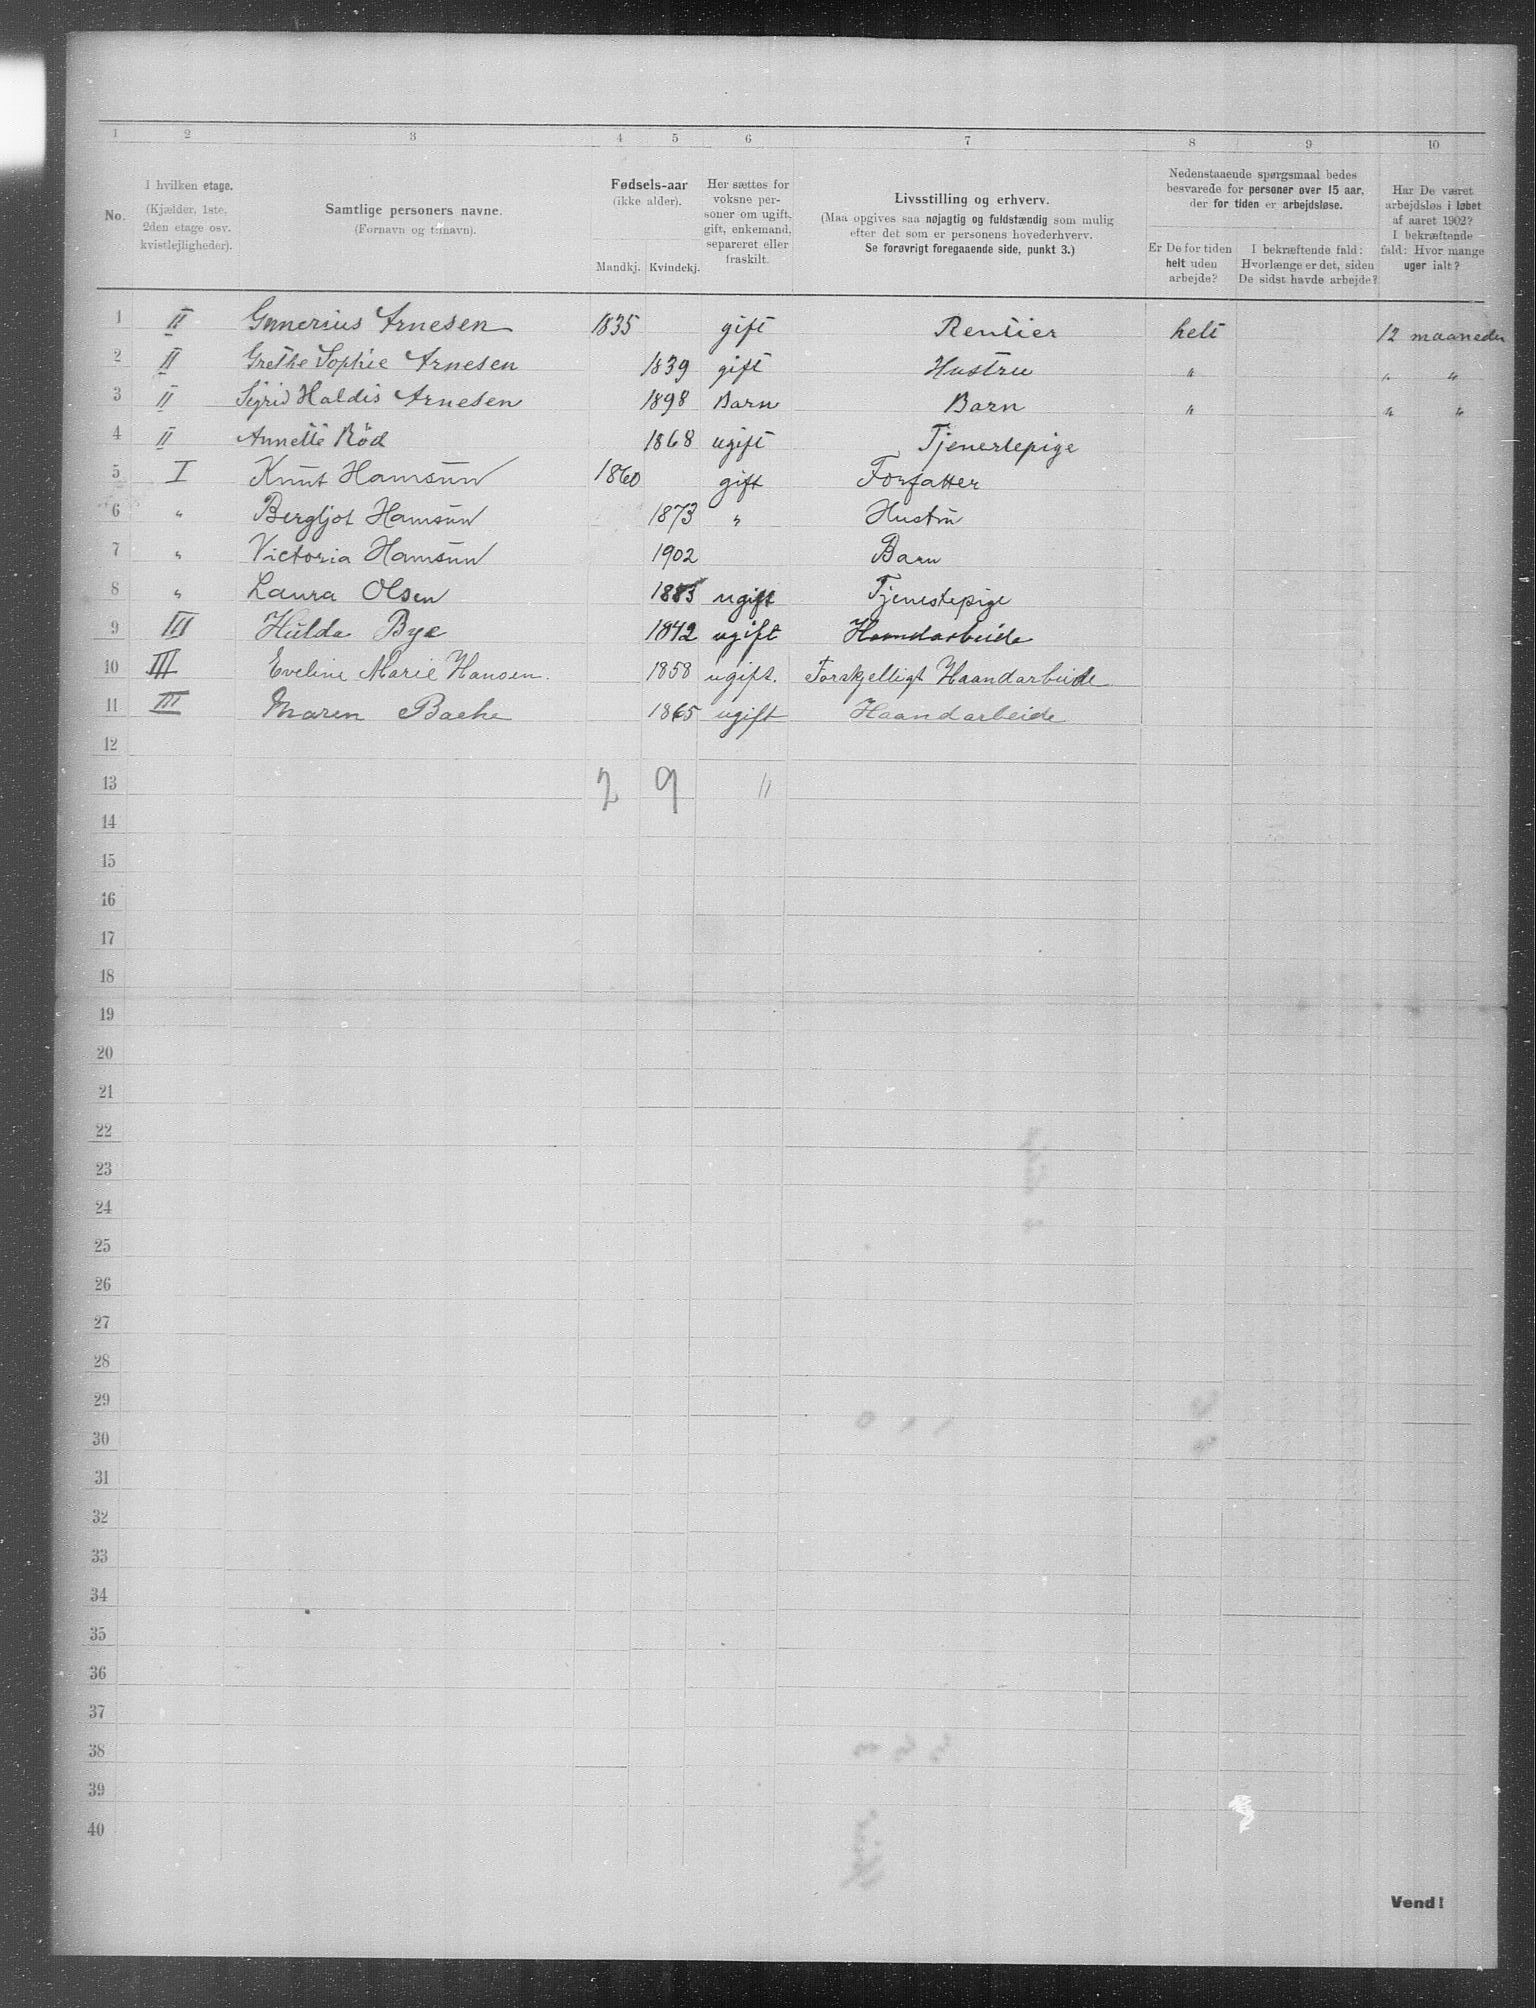 1 2 3 4 5 6 7 8 9 10
No.
I hvilken etage.
(Kjælder, 1ste,
2den etage osv.
kvistlejligheder).
Samtlige personers navne.
(Fornavn og tilnavn).
Fødsels-aar
(ikke alder).
Mandkj. Kvindekj.
Her sættes for
voksne per-
soner om ugift,
gift, enkemand,
separeret eller
fraskilt.
Livsstilling og erhverv.
(Maa opgives saa nøjagtig og fuldstændig som mulig
efter det som er personens hovederhverv.
Se forøvrigt foregaaende side, punkt 3.)
Nedenstaaende spørgsmaal bedes
besvarede for personer over 15 aar,
der for tiden er arbejdsløse.
Er De for tiden
helt uden
arbejde?
I bekræftende fald:
Hvorlænge er det, siden
De sidst havde arbejde?
Har De været
arbejdsløs i løbet
af aaret 1902?
I bekræftende
fald: Hvor mange
uger ialt?
1 II Gunerius Arnesen 1835 gift Rentier helt 12 maaneder
2 II Grethe Sophie Arnesen 1839 gift Hustru " " "
3 II Sigrid Haldis Arnesen 1898 Barn Barn " " "
4 II Annette Röd 1868 ugift Tjenestepige
5 I Knut Hamsun 1860 gift Forfatter
6 " Bergljot Hamsun 1873 " Hustru
7 " Victoria Hamsun 1902 Barn
8 " Laura Olsen 1883 ugift Tjenestepige
9 III Hulda Bye 1842 ugift Haandarbeide
10 III Eveline Marie Hansen. 1858 ugift. Forskjelligt Haandarbeide
11 III Maren Bache 1865 ugift Haandarbeide
12
13 2 9 11
14
15
16
17
18
19
20
21
22
23
24
25
26
27
28
29
30
31
32
33
34
35
36
37
38
39
40
Vend!